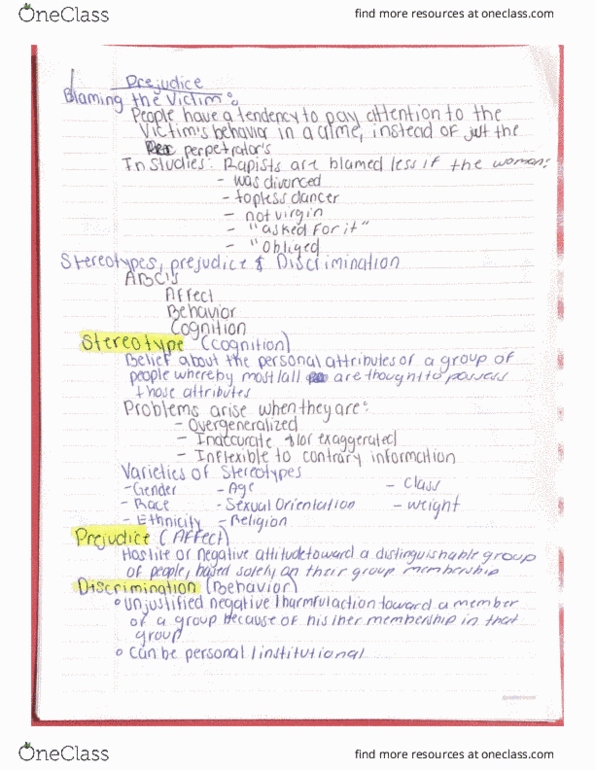 OneClass
find more resources at oneclass.com
Prejudice
Blaming the Victim:
People have a tendency to pay attention to the
Victim's behavior in a crime, instead of just the
perpetrator's
In studies: Rapists are blamed less if the woman:
- was divorced
- topless dancer
- not virgin
- "asked for it"
- "obliged
Stereotypes, prejudice & Discrimination
ABC's
Affect
Behavior
Cognition
Stereotype (Cognition)
Belief about the personal attributes of a group of
people whereby most/all are thought to possess
those attributes
Problems arise when they are:
- Overgeneralized
- Inaccurate &/or exaggerated
- Inflexible to contrary information
Varieties of Stereotypes
- Gender - Age - Class
- Race - Sexual Orientation - weight
- Ethnicity - Religion
Prejudice (Affect)
Hostile or negative attitude toward a distinguishable group
of people, based solely on their group membership
Discrimination (Behavior)
• Unjustified negative/harmful action toward a member
of a group because of his/her membership in that
group
• Can be personal/institutional
OneClass
find more resources at oneclass.com